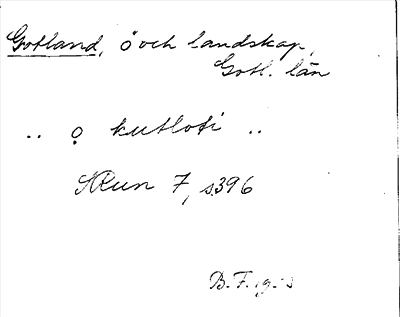 Gotland, ö och landskap,
Gotl. län
.. o̧ kutloti ..
SRun 7, s.396
B.F.